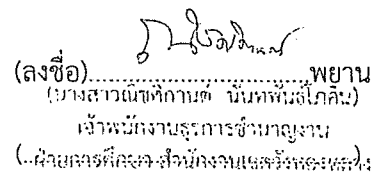 (ลงชื่อ)..............................พยาน
(นางสาวณัชติกานต์ นันทพันธ์โภคิน)
เจ้าพนักงานธุรการชำนาญงาน
(..ฝ่ายการศึกษา สำนักงานเขตวังทองหลาง